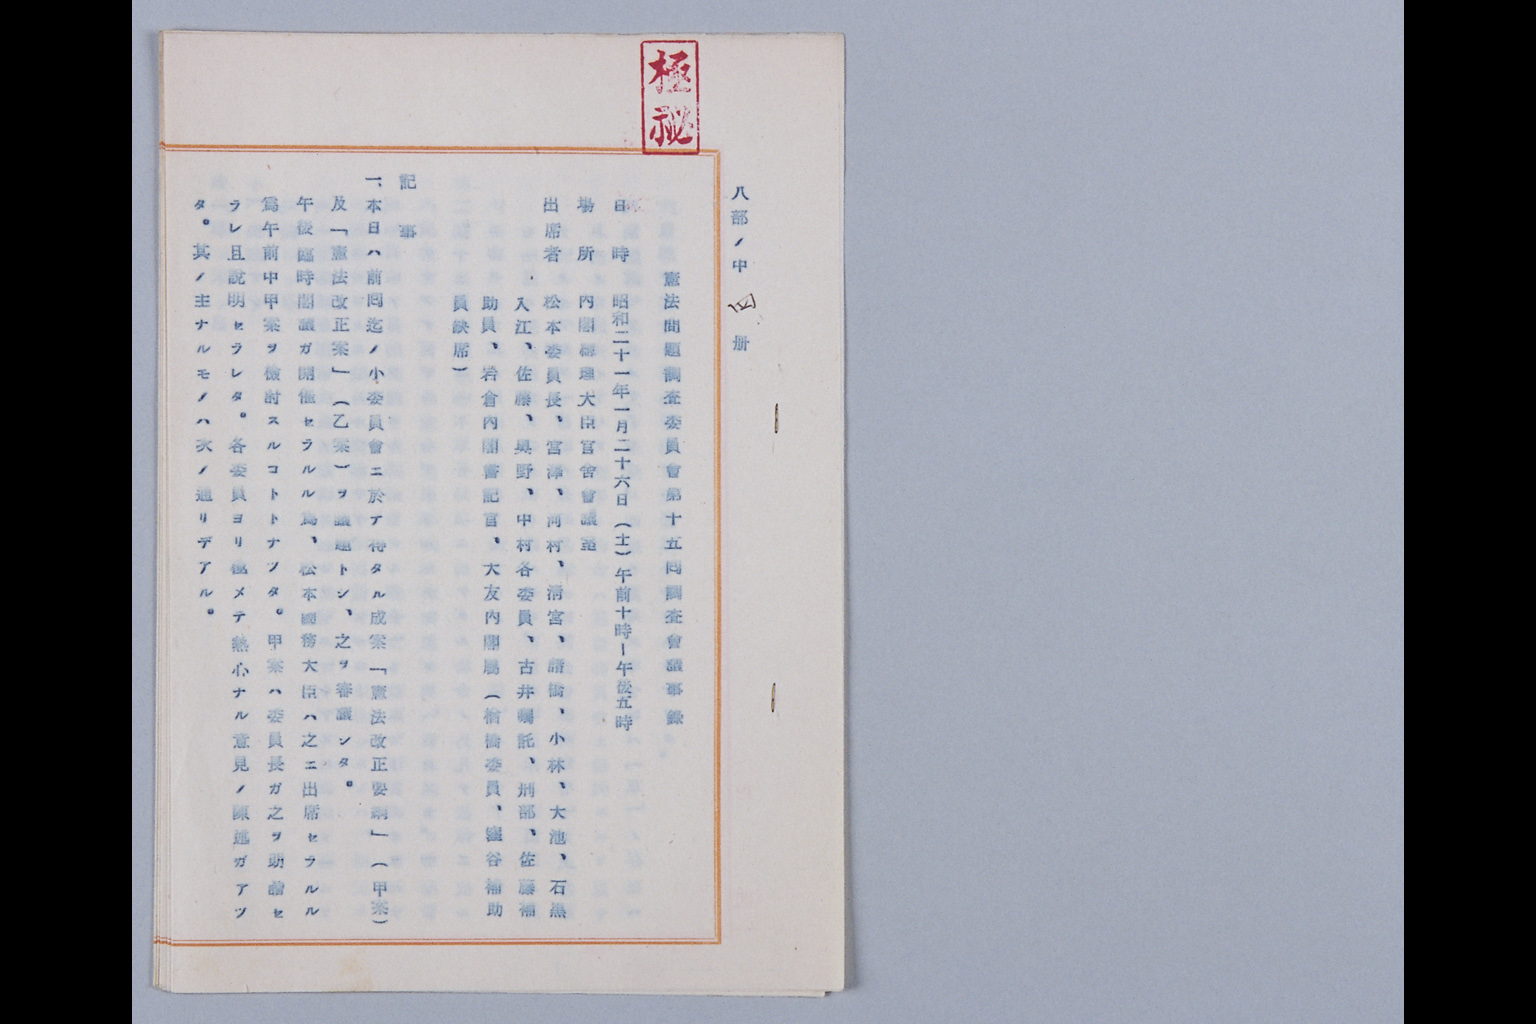 極秘
八部ノ中四册
憲法問題調査委員會第十五囘調査會議事錄
日時 昭和二十一年一月二十六日(土)午前十時ー午後五時
場所 內閣總理大臣官舍會議室
出席者 松本委員長、宮澤、河村、淸宮、諸橋、小林、大池、石黑
入江、佐藤、奧野、中村各委員、古井囑託、刑部、佐藤補
助員、岩倉內閣書記官、大友內閣屬(楢橋委員、窪谷補助
員缺席)
記事
一、本日ハ前囘迄ノ小委員會ニ於テ得タル成案「憲法改正要綱」(甲案)
及「憲法改正案」(乙案)ヲ議題トシ、之ヲ審議シタ。
午後臨時閣議ガ開催セラルル爲、松本國務大臣ハ之ニ出席セラルル
爲午前中甲案ヲ檢討スルコトトナツタ。甲案ハ委員長ガ之ヲ朗讀セ
ラレ且說明セラレタ。各委員ヨリ極メテ熱心ナル意見ノ陳述ガアツ
タ。其ノ主ナルモノハ次ノ通リデアル。